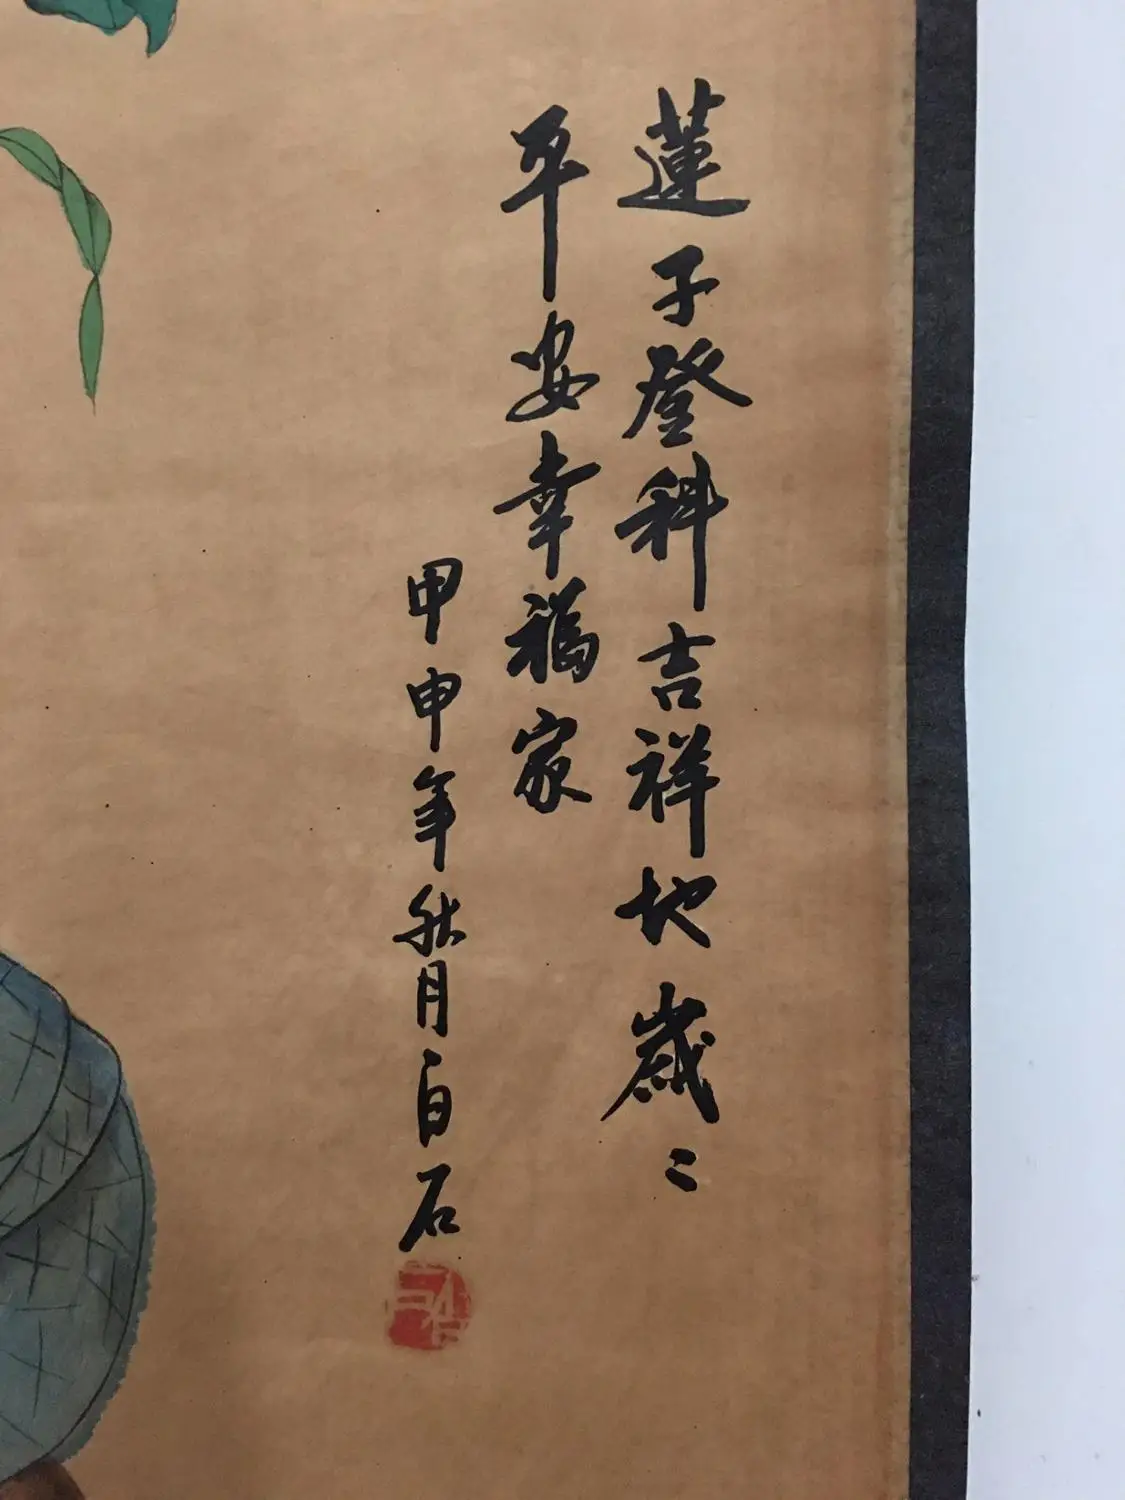 蓮子登科吉祥地歲〻
平安幸福家
甲申年秋月白石